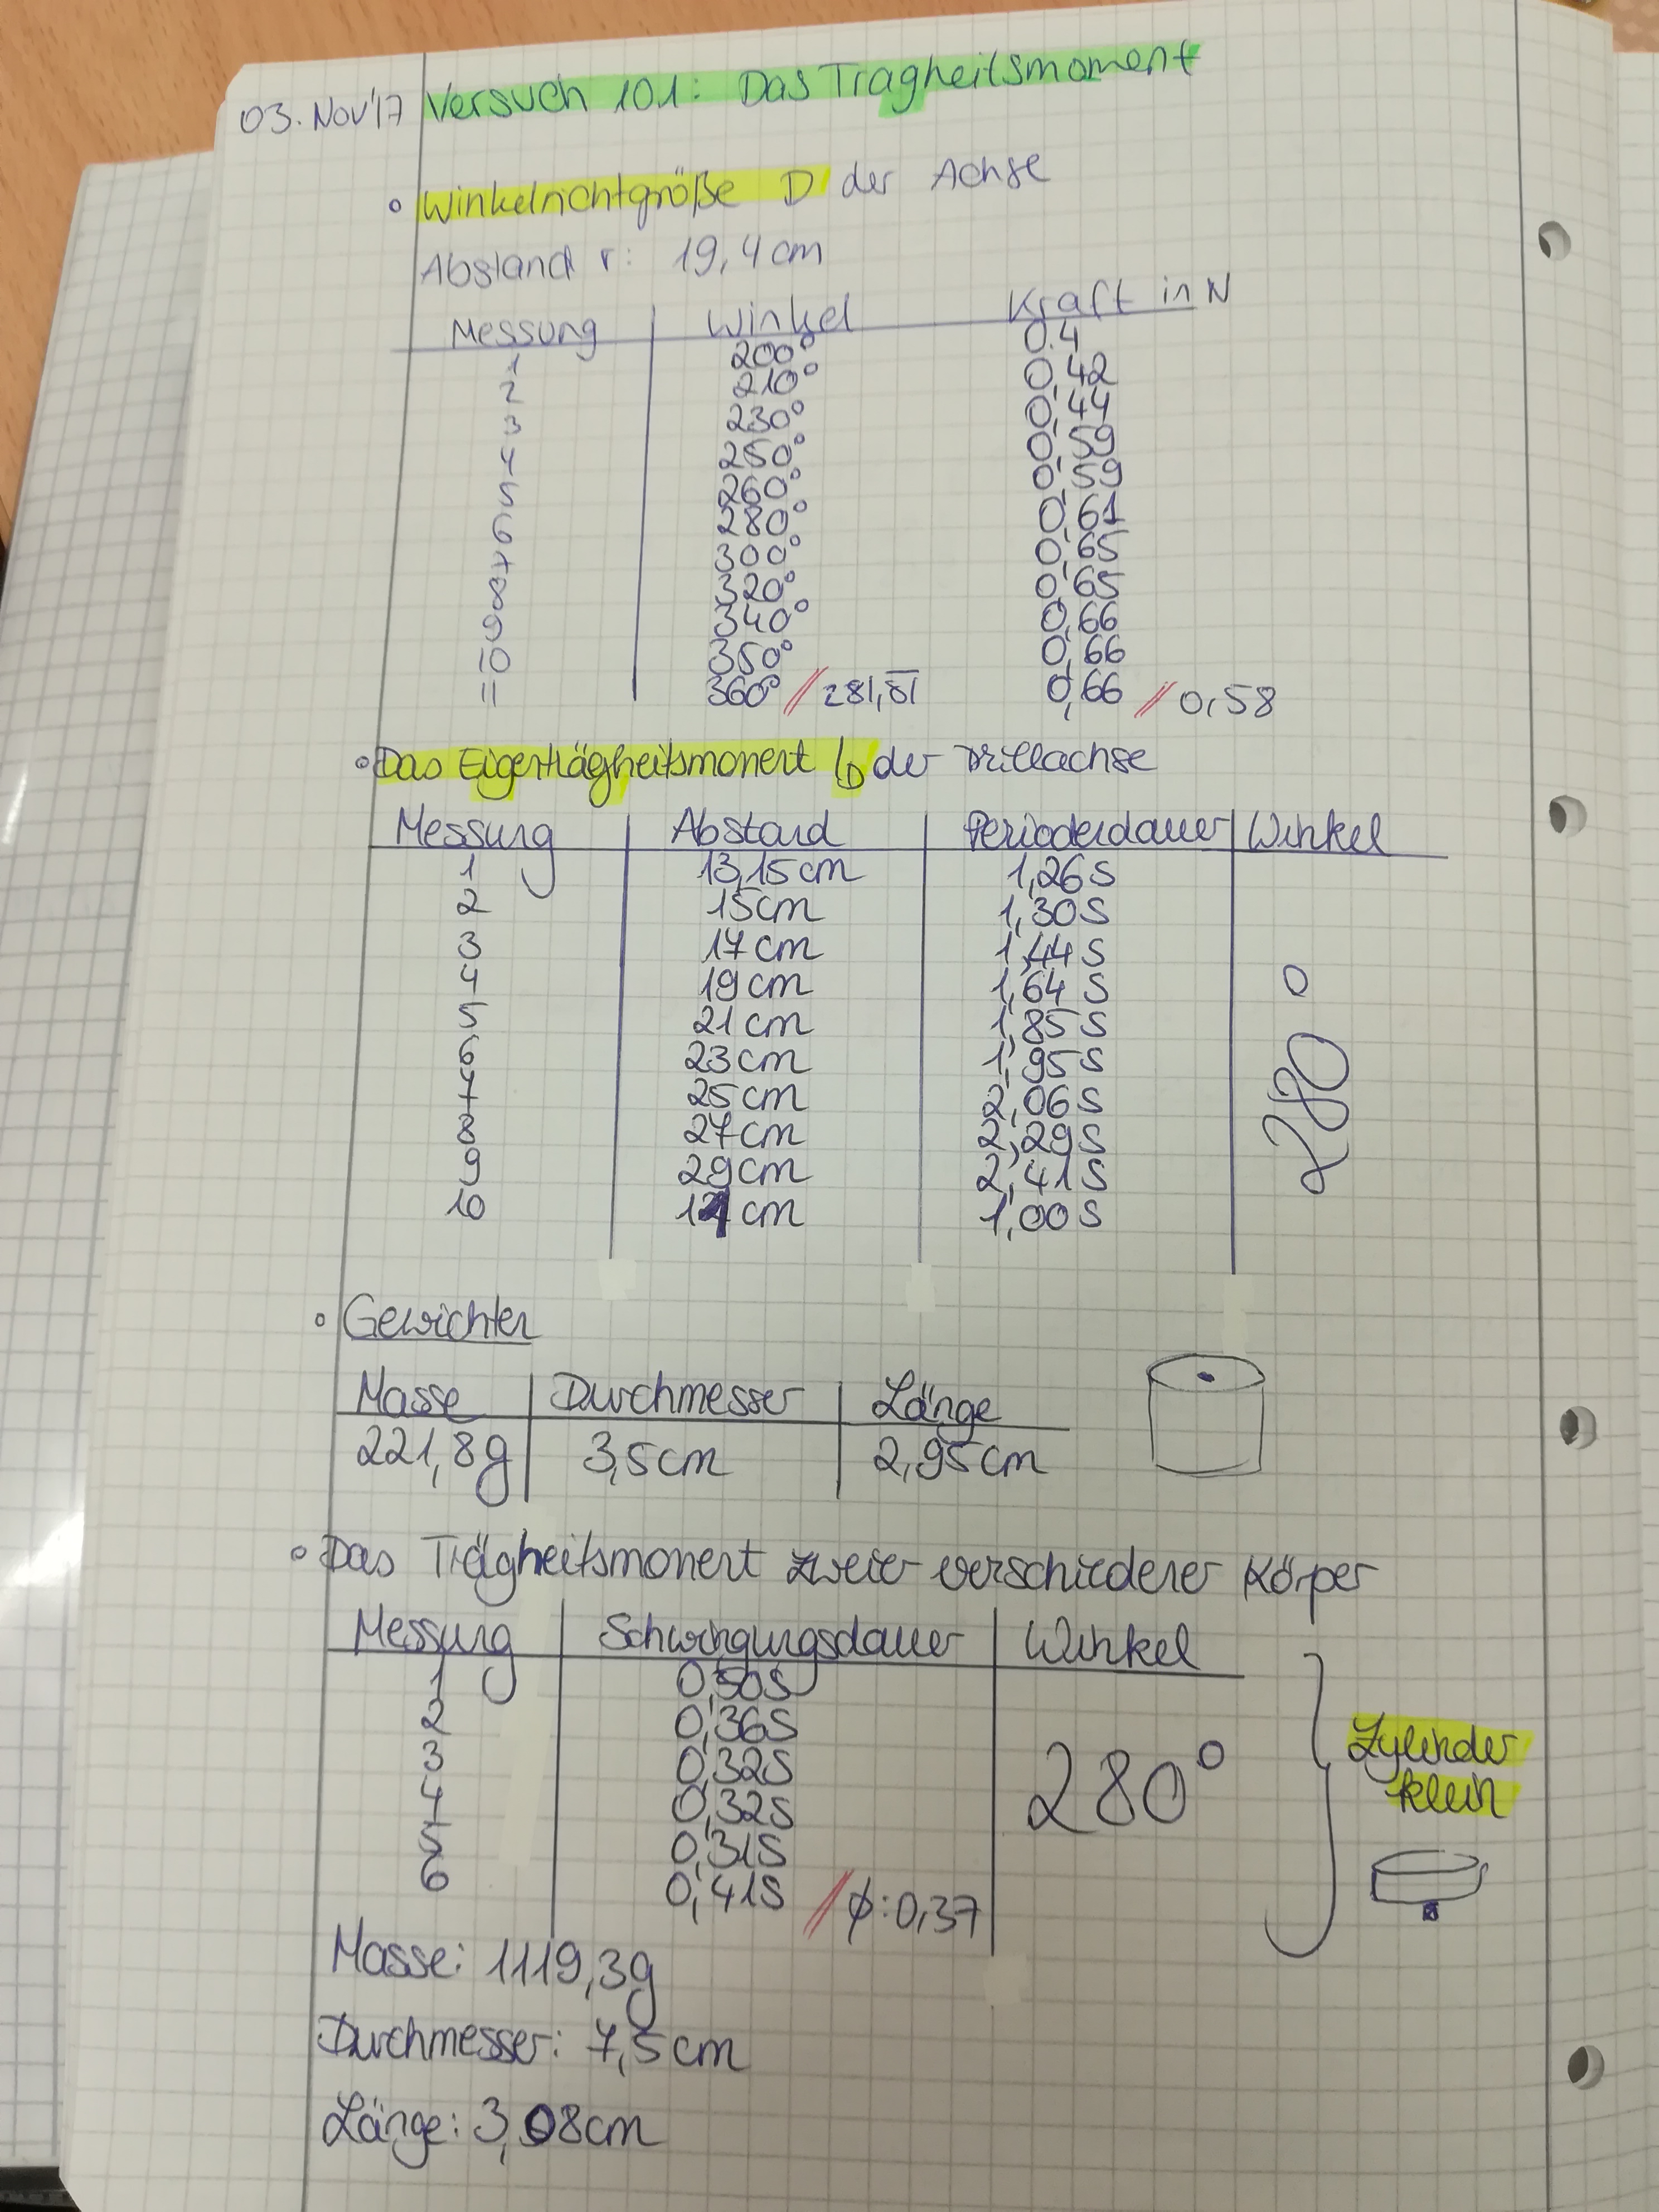 03. Nov'17 Versuch 101: Das Trägheitsmoment
° Winkelrichtgröße D der Achse
Abstand r: 19,4 cm
Messung Winkel Kraft in N
1 200° 0.4
2 210° 0,42
3 230° 0,44
4 250° 0,59
5 260° 0,59
6 280° 0,61
7 300° 0,65
8 320° 0,65
9 340° 0,66
10 350° 0,66
11 360° // 281,81 0,66 // 0,58
° Das Eigenträgheitsmoment I_D der Drillachse
Messung Abstand Periodendauer Winkel
1 13,15 cm 1,26 s
2 15 cm 1,30 s
3 17 cm 1,44 s
4 19 cm 1,64 s
5 21 cm 1,85 s
6 23 cm 1,95 s
7 25 cm 2,06 s
8 27 cm 2,29 s
9 29 cm 2,41 s
10 cm 1,00 s
280°
° Gewichter
Masse Durchmesser Länge
221,8g 3,5cm 2,95cm
° Das Trägheitsmoment zweier verschiedener Körper
Messung Schwingungsdauer Winkel
1 0,50s
2 0,36s
3 0,32s
4 0,32s
5 0,31s
6 0,41s // ϕ: 0,37
280°
Zylinder
klein
Masse: 1119,3g
Durchmesser: 7,5 cm
Länge: 3,08cm